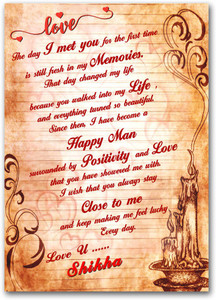 love
The day I met you for the first time
is still fresh in my Memories.
That day changed my life
because you walked into my Life ,
and everything turned so beautiful.
Since then, I have become a
Happy Man
surrounded by Positivity and Love
that you have showered me with
I wish that you always stay
Close to me
and keep making me feel lucky
Every day.
Love U ......
Shikha